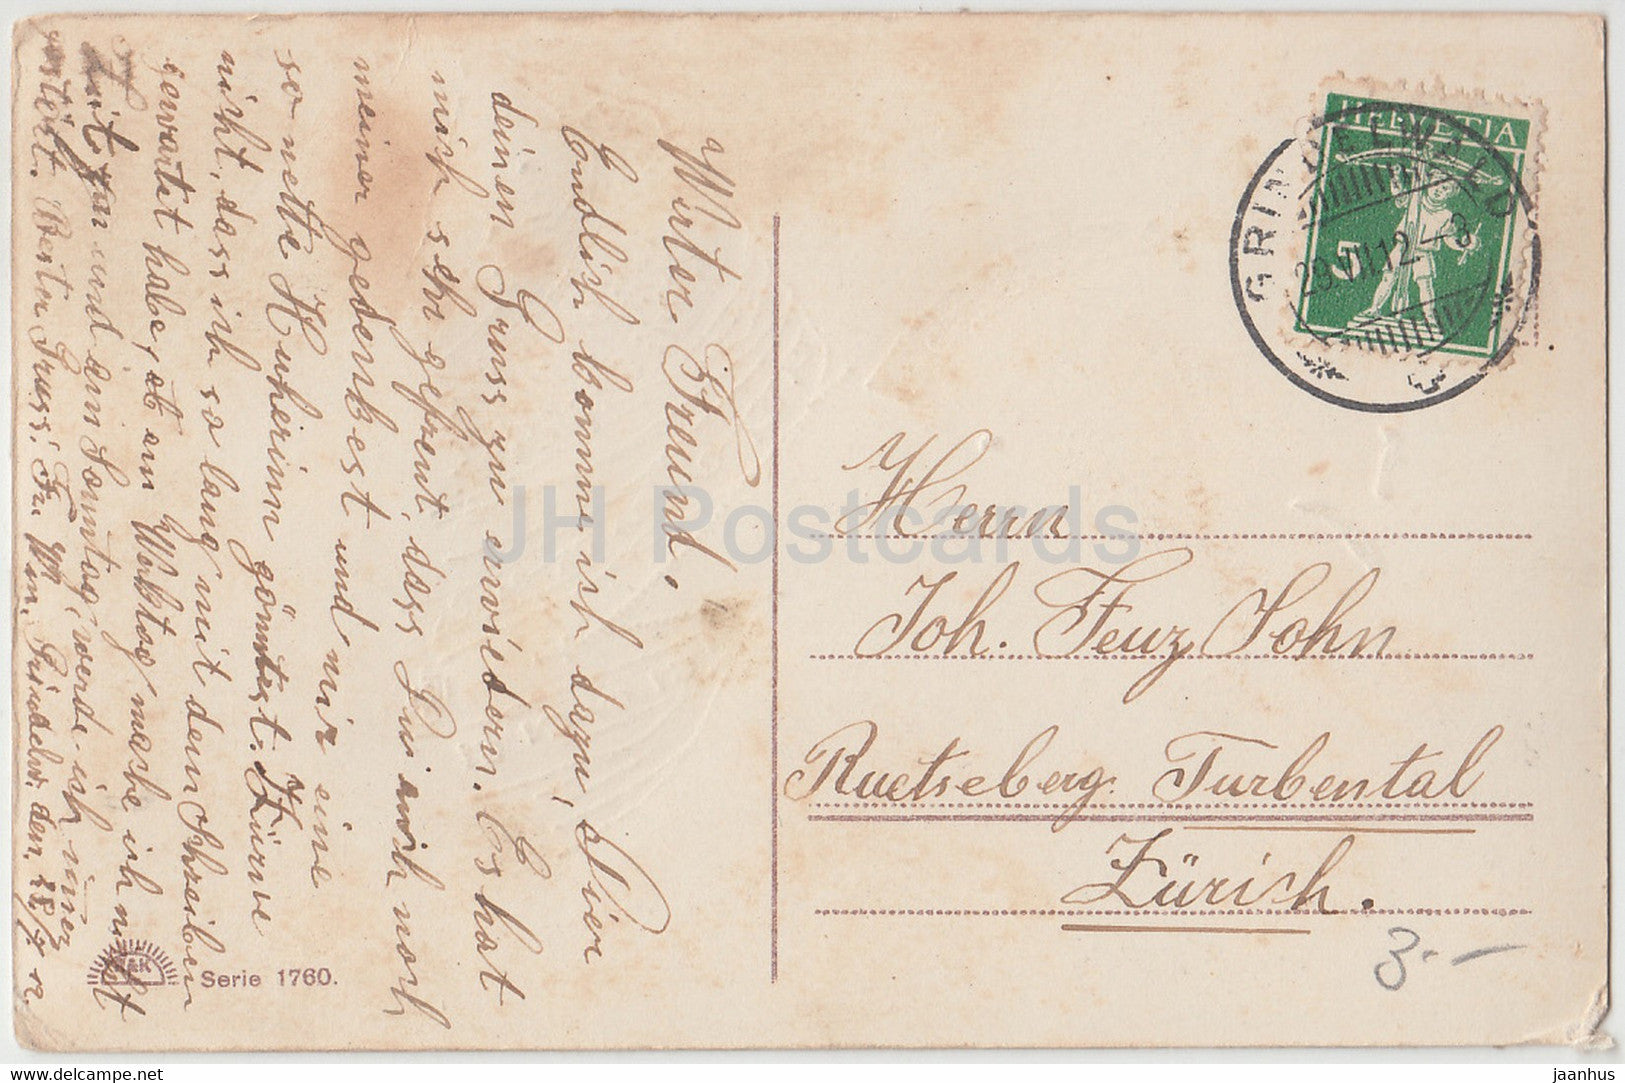 Werter Freund,
Endlich komme ich dazu, Dier
deinen Gruss zu erwiedern. Es hat
mich sehr gefreut, dass Du auch noch
meiner gedenkest und mir eine
so nette Huherinn gönntest. Zürne
nicht, dass ich so lang mit dem Schreiben
gewartet habe, am Wektag mache ich nicht
und am Sonntag werde ich imer
gestört. Bester Gruss: Fr. Wm. Grindelw. den. 28/7. 12.
HELVETIA
5
GRINDELWALD
29.VII.12.–8
Herrn
Joh. Feuz, Sohn
Ruetseberg. Turbental
Zürich.
3.–
Serie 1760.
JH Postcards
delcampe.net
jaanhus